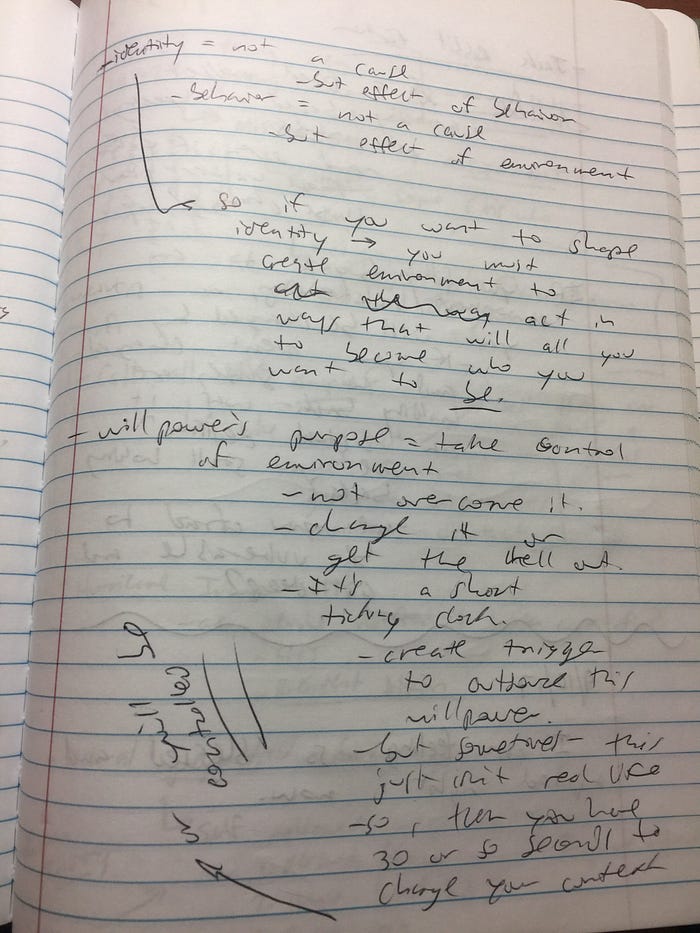 - identity = not a cause
- but effect of behavior
- Behavior = not a cause
- but effect of environment
so if you want to shape
identity → you must
create environment to
act in
ways that will all you
to become who you
want to be.
- will power's purpose = take control
of environment
- not overcome it.
- change it or
get the hell out.
- It's a short
ticking clock.
- create trigger
to outsource this
willpower.
- but sometimes - this
just isn't real life
- so, then you have
30 or so seconds to
change your context
or
it will
control
you